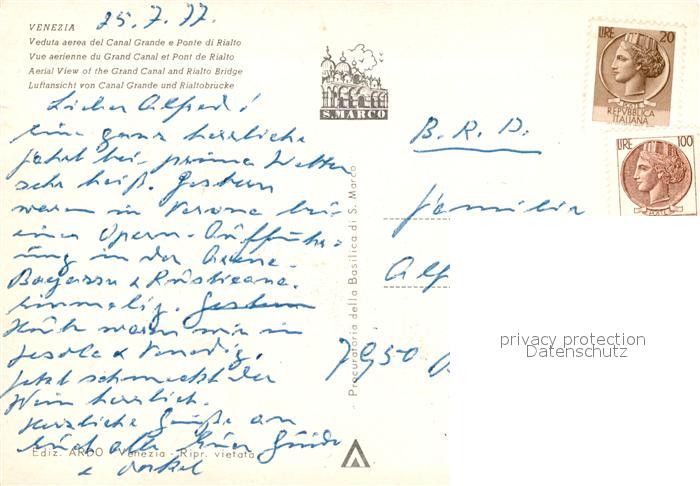 25.7.77
VENEZIA
Veduta aerea del Canal Grande e Ponte di Rialto
Vue aérienne du Grand Canal et Pont de Rialto
Aerial View of the Grand Canal and Rialto Bridge
Luftansicht von Canal Grande und Rialtobrucke
S. MARCO
LIRE 20
POSTE
REPVBBLICA
ITALIANA
LIRE 100
POSTE
Lieber Alfred!
Eine ganz herrliche
Fahrt bei prima Wetter
sehr heiß. Gestern
waren in Verona bei
einer Opern-Aufführ=
ung in der Arena.
Bagazzo & Rusticana.
Einmalig. Gestern
Heute waren wir in
Jesolo & Venedig.
Jetzt schmeckt der
Wein herrlich.
Herzliche Grüße an
Euch alle
&
B.R.D.
Familie
Alf
7950
Procuratoria della Basilica di S. Marco
Ediz. ARDO - Venezia - Ripr. vietata
privacy protection
Datenschutz